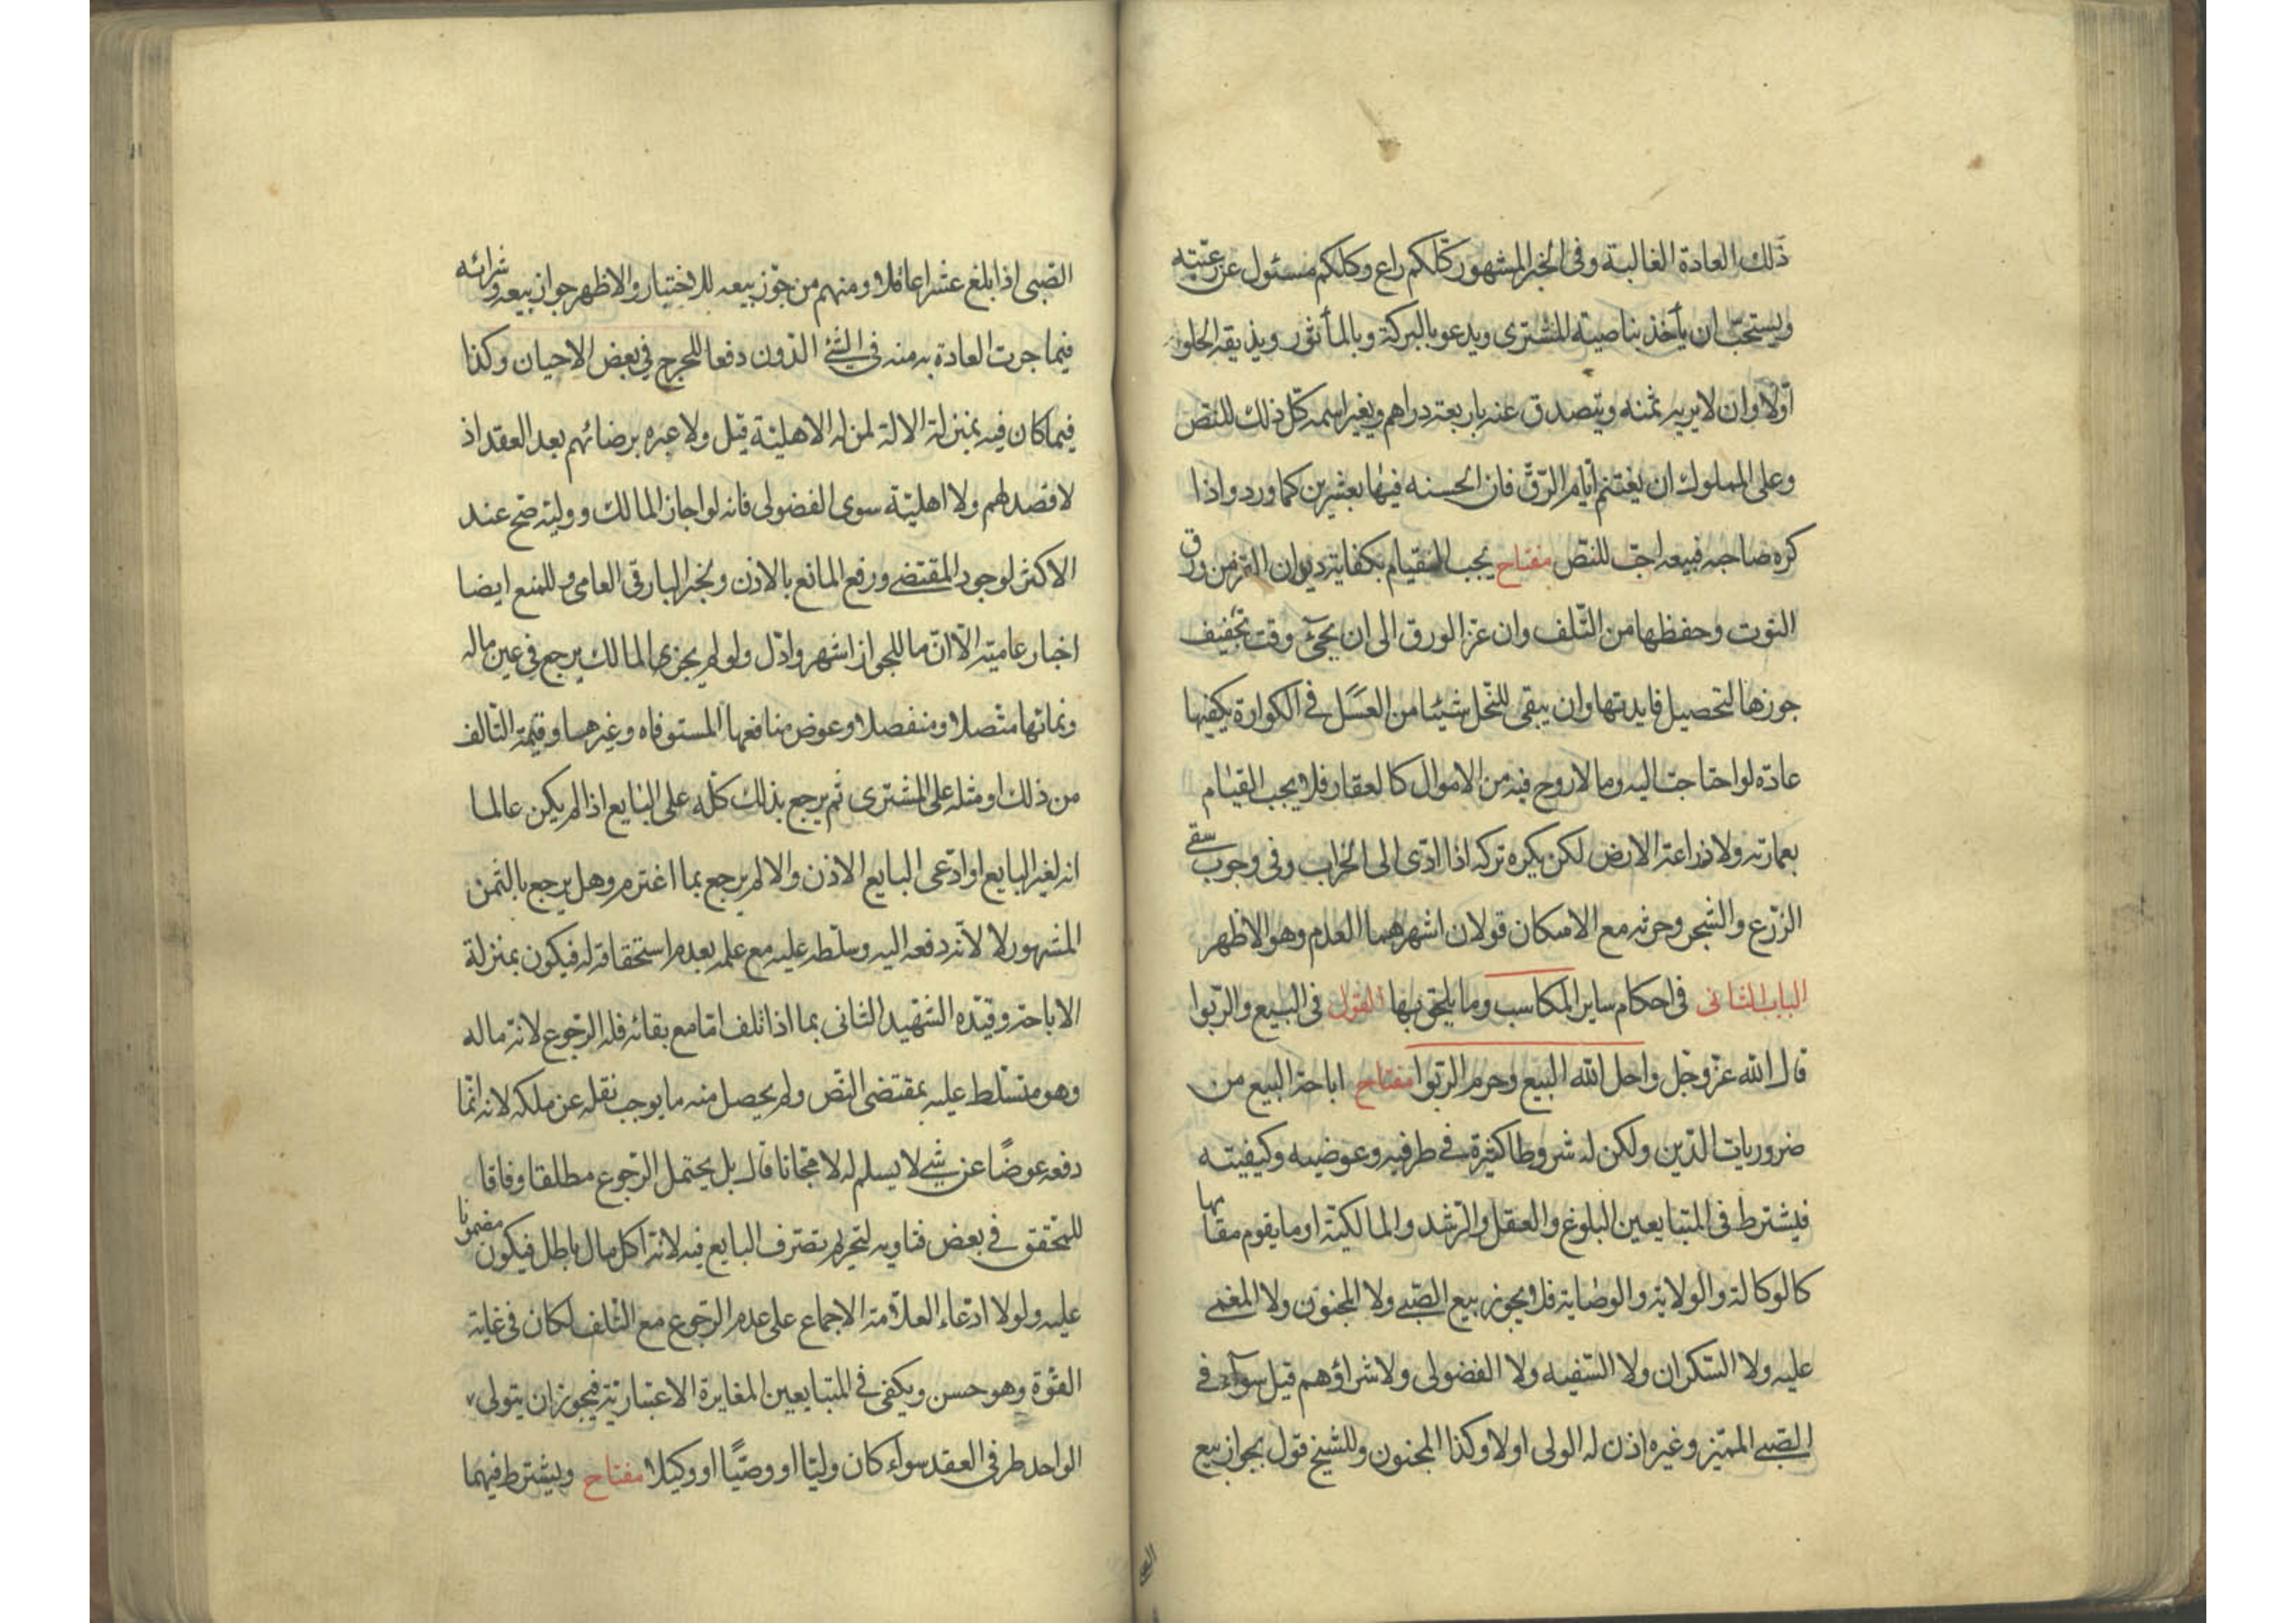 ذلك العادة الغالبة وفى الخبر المشهور كلكم راع وكلكم مسئول عن رعيته
ويستحبّ ان يأخذ بناصيته المشترى ويدعو بالبركة وبالمأثور ويذيقه الحلو
اوّلا وان لا يريه ثمنه ويتصدق عنه باربعة دراهم ويغير اسمه كلّ ذلك للنصّ
وعلى المملوك ان يغتنم ايام الرّقّ فان الحسنه فيها بعشرين كما ورد واذا
كره صاحبه فبيعه احبّ للنصّ مفتاح يجب القيام بكفاية ديوان القز من ورق
التوت وحفظها من التّلف وان عزّ الورق الى ان يجئ وقت تجفيف
جوزها لتحصيل فايدتها وان يبقى للنّحل شيئا من العسل فى الكوارة يكفيها
عادة لو احتاجت اليه وما لا روح فيه من الاموال كالعقار فلا يجب القيام
بعمارته ولا زراعة الارض لكن يكره تركه اذا ادّى الى الخراب وفى وجوب سقى
الزّرع والشجر وحرثه مع الامكان قولان اشهرهما العدم وهو الاظهر
الباب الثانى فى احكام ساير المكاسب وما يلحق بها القول فى البيع والرّبوا
قال الله عزّ وجل واحل الله البيع وحرم الرّبوا مفتاح اباحة البيع من
ضروريات الدّين ولكن له شروطا كثيرة فى طرفيه وعوضيه وكيفيته
فيشترط فى المتبايعين البلوغ والعقل والرّشد والمالكيّة او ما يقوم مقامها
كالوكالة والولاية والوصاية فلا يجوز بيع الصّبى ولا المجنون ولا المغمى
عليه ولا السّكران ولا السّفيه ولا الفضولى ولا شراؤهم قيل سواء فى
الصّبى المميّز وغيره اذن له الولى او لا وكذا المجنون وللشيخ قول بجواز بيع
الصّبى اذا بلغ عشرا عاقلا ومنهم من جوّز بيعه للاختيار والاظهر جواز بيعه وشرائه
فيما جرت العادة به منه فى الشئ الدّون دفعا للحرج فى بعض الاحيان وكذا
فيما كان فيه بمنزلة الالة لمن له الاهليّة قيل ولا عبره برضائهم بعد العقد اذ
لا قصد لهم ولا اهليّة سوى الفضولى فانه لو اجاز المالك ووليّه صحّ عند
الاكثر لوجود المقتضى ورفع المانع بالاذن ولخبر البارقى العامى وللمنع ايضا
اخبار عاميّة الّا انّ ما للجواز اشهر وادلّ ولو لم يجزها المالك يرجع فى عين ماله
ونمائها متصلا ومنفصلا وعوض منافعها المستوفاه وغيرها وقيمة التّالف
من ذلك او مثله على المشترى ثم يرجع بذلك كلّه على البايع اذا لم يكن عالما
انه لغير البايع او ادّعى البايع الاذن والا لم يرجع بما اغترم وهل يرجع بالثمن
المشهور لا لانّه دفعه اليه وسلّطه عليه مع علمه بعدم استحقاقه له فيكون بمنزلة
الاباحة وقيّده الشهيد الثانى بما اذا تلف امّا مع بقائه فله الرّجوع لانّه ماله
وهو متسلّط عليه بمقتضى النّص ولم يحصل منه ما يوجب نقله عن ملكه لانه انّما
دفعه عوضًا عن شئ لا يسلم له لا مجّانا قال بل يحتمل الرّجوع مطلقا وفاقا
للمحقق فى بعض فتاويه لتحريم تصرف البايع فيه لانّه اكل مال باطل فيكون مضمونا
عليه ولولا ادّعاء العلّامة الاجماع على عدم الرّجوع مع التّلف لكان فى غاية
القوّة وهو حسن ويكفى فى المتبايعين المغايرة الاعتباريّة فيجوز ان يتولى
الواحد طرفى العقد سواء كان وليّا او وصيًّا او وكيلا مفتاح ويشترط فيهما